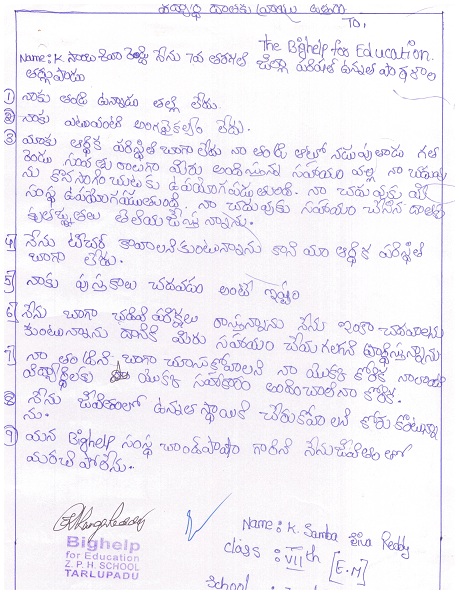 విద్యార్థి దాతకు వ్రాయు ఉత్తరం
TO,
The Bighelp for Education.
Name: K. సాంబ శివా రెడ్డి నేను 7వ తరగతి జిల్లా పరిషత్ ఉన్నత పాఠశాల
తర్లుపాడు
1) నాకు తండ్రి ఉన్నాడు తల్లి లేదు.
2) నాకు ఎటువంటి అంగవైకల్యం లేదు.
3) మాకు ఆర్థిక పరిస్థితి బాగా లేదు నా తండ్రి ఆటో నడుపుతాడు గత
రెండు సంవత్సరాలుగా మీరు అందిస్తున్న సహాయం వల్ల నా చదువు
ను కొనసాగించుటకు ఉపయోగపడుతుంది. నా చదువుకు మీ
సంస్థ ఉపయోగపడుతుంది. నా చదువుకు సహాయం చేసిన దాతకు
కృతజ్ఞతలు తెలియజేస్తున్నాను.
4) నేను టీచర్ కావాలనికుంటున్నాను కానీ మా ఆర్థిక పరిస్థితి
బాగా లేదు.
5) నాకు పుస్తకాలు చదవడం అంటే ఇష్టం
6) నేను బాగా చదివి పరీక్షలు రాస్తున్నాను నేను ఇంకా చదవాలను
కుంటున్నాను దానికి మీరు సహాయం చేయగలరని ప్రార్థిస్తున్నాను
7) నా తండ్రిని బాగా చూసుకోవాలని నా యొక్క కోరిక నాలాంటి
విద్యార్థులకు యొక్క సహకారం అందించాలని నా కోరిక.
8 నేను జీవితంలో ఉన్నత స్థాయికి చేరుకోవాలని కోరుకుంటున్నా
ను.
9) మన Bighelp సంస్థ చాంద్ పాషా గారిని నేను జీవితంలో
మరచి పోలేను.
Bighelp
for Education
Z. P. H. SCHOOL
TARLUPADU
Name: K. Samba Siva Reddy
class : VIIth [E.M]
School :